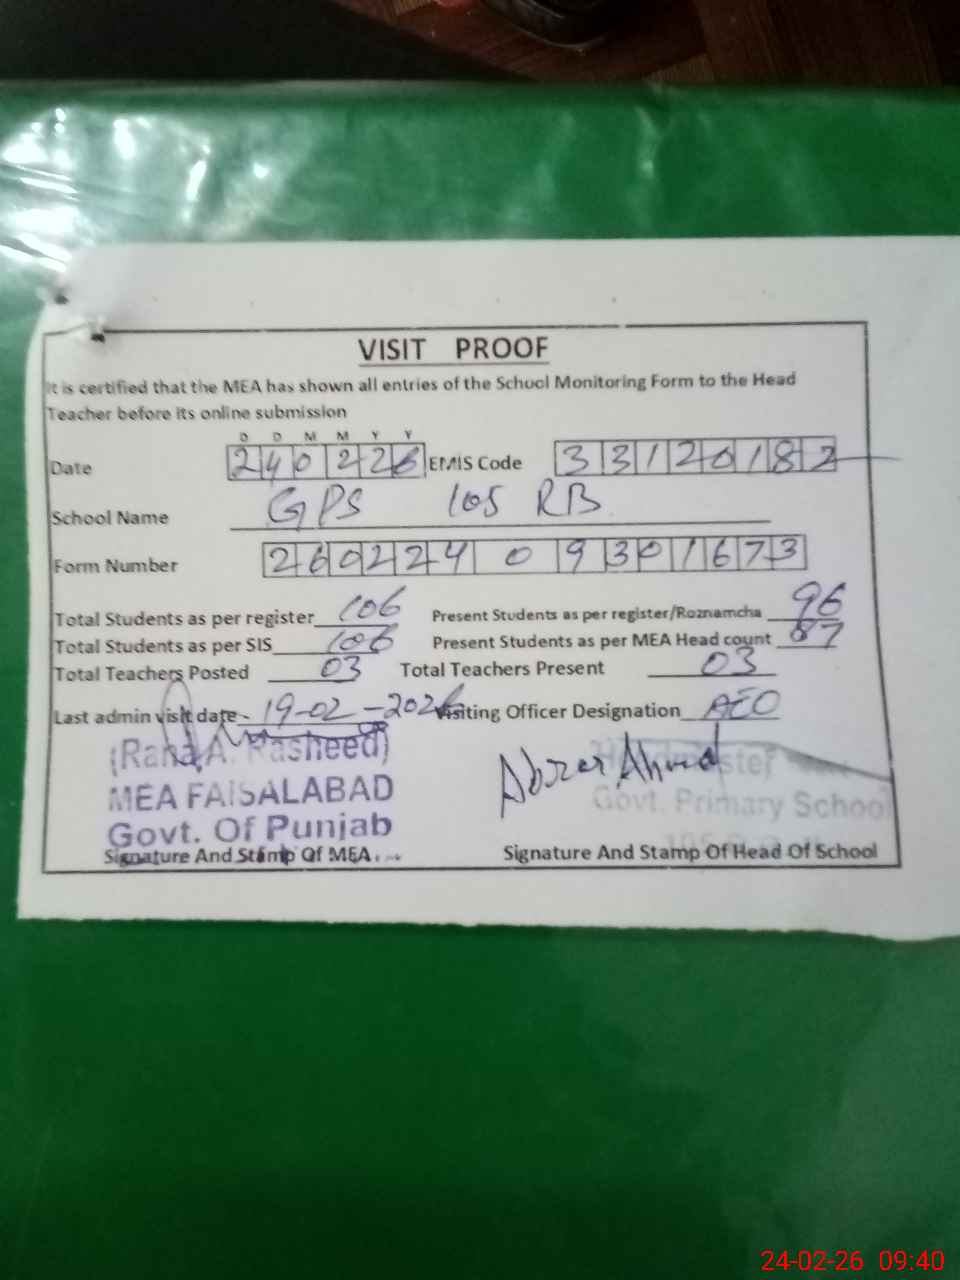 VISIT PROOF
It is certified that the MEA has shown all entries of the School Monitoring Form to the Head
Teacher before its online submission
D D M M Y Y
Date 240226 EMIS Code 33120182
School Name GPS 105 RB
Form Number 26022409301673
Total Students as per register 106 Present Students as per register/Roznamcha 96
Total Students as per SIS 106 Present Students as per MEA Head count 87
Total Teachers Posted 03 Total Teachers Present 03
Last admin visit date - 19-02-2026 Visiting Officer Designation AEO
(Rana A. Rasheed)
MEA FAISALABAD
Govt. Of Punjab
Signature And Stamp Of MEA
Abzar Ahmad
Headmaster
Govt. Primary School
Signature And Stamp Of Head Of School
24-02-26 09:40